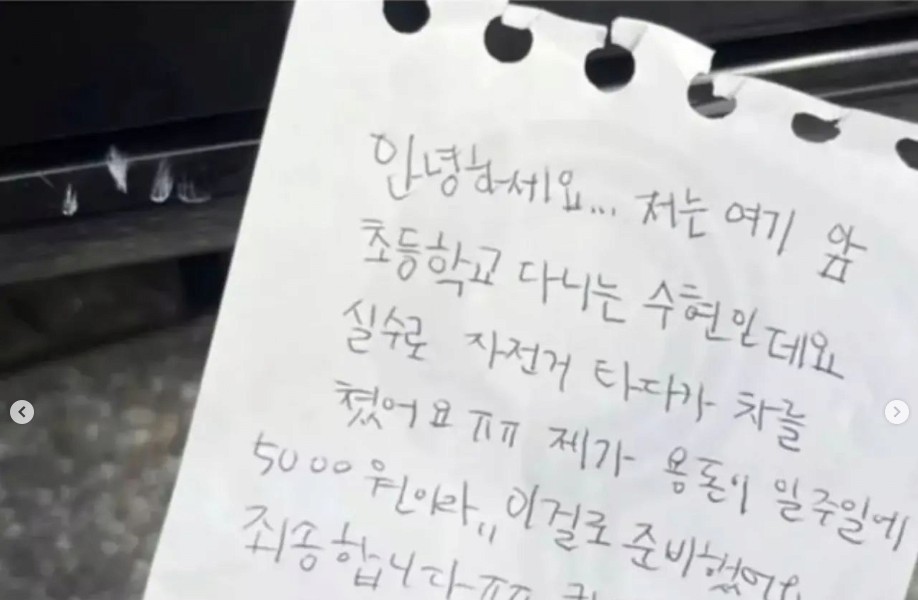 안녕하세요... 저는 여기 앞
초등학교 다니는 수현인데요
실수로 자전거 타다가 차를
쳤어요 ㅠㅠ 제가 용돈이 일주일에
5000원이라,, 이걸로 준비했어요
죄송합니다ㅠㅠ